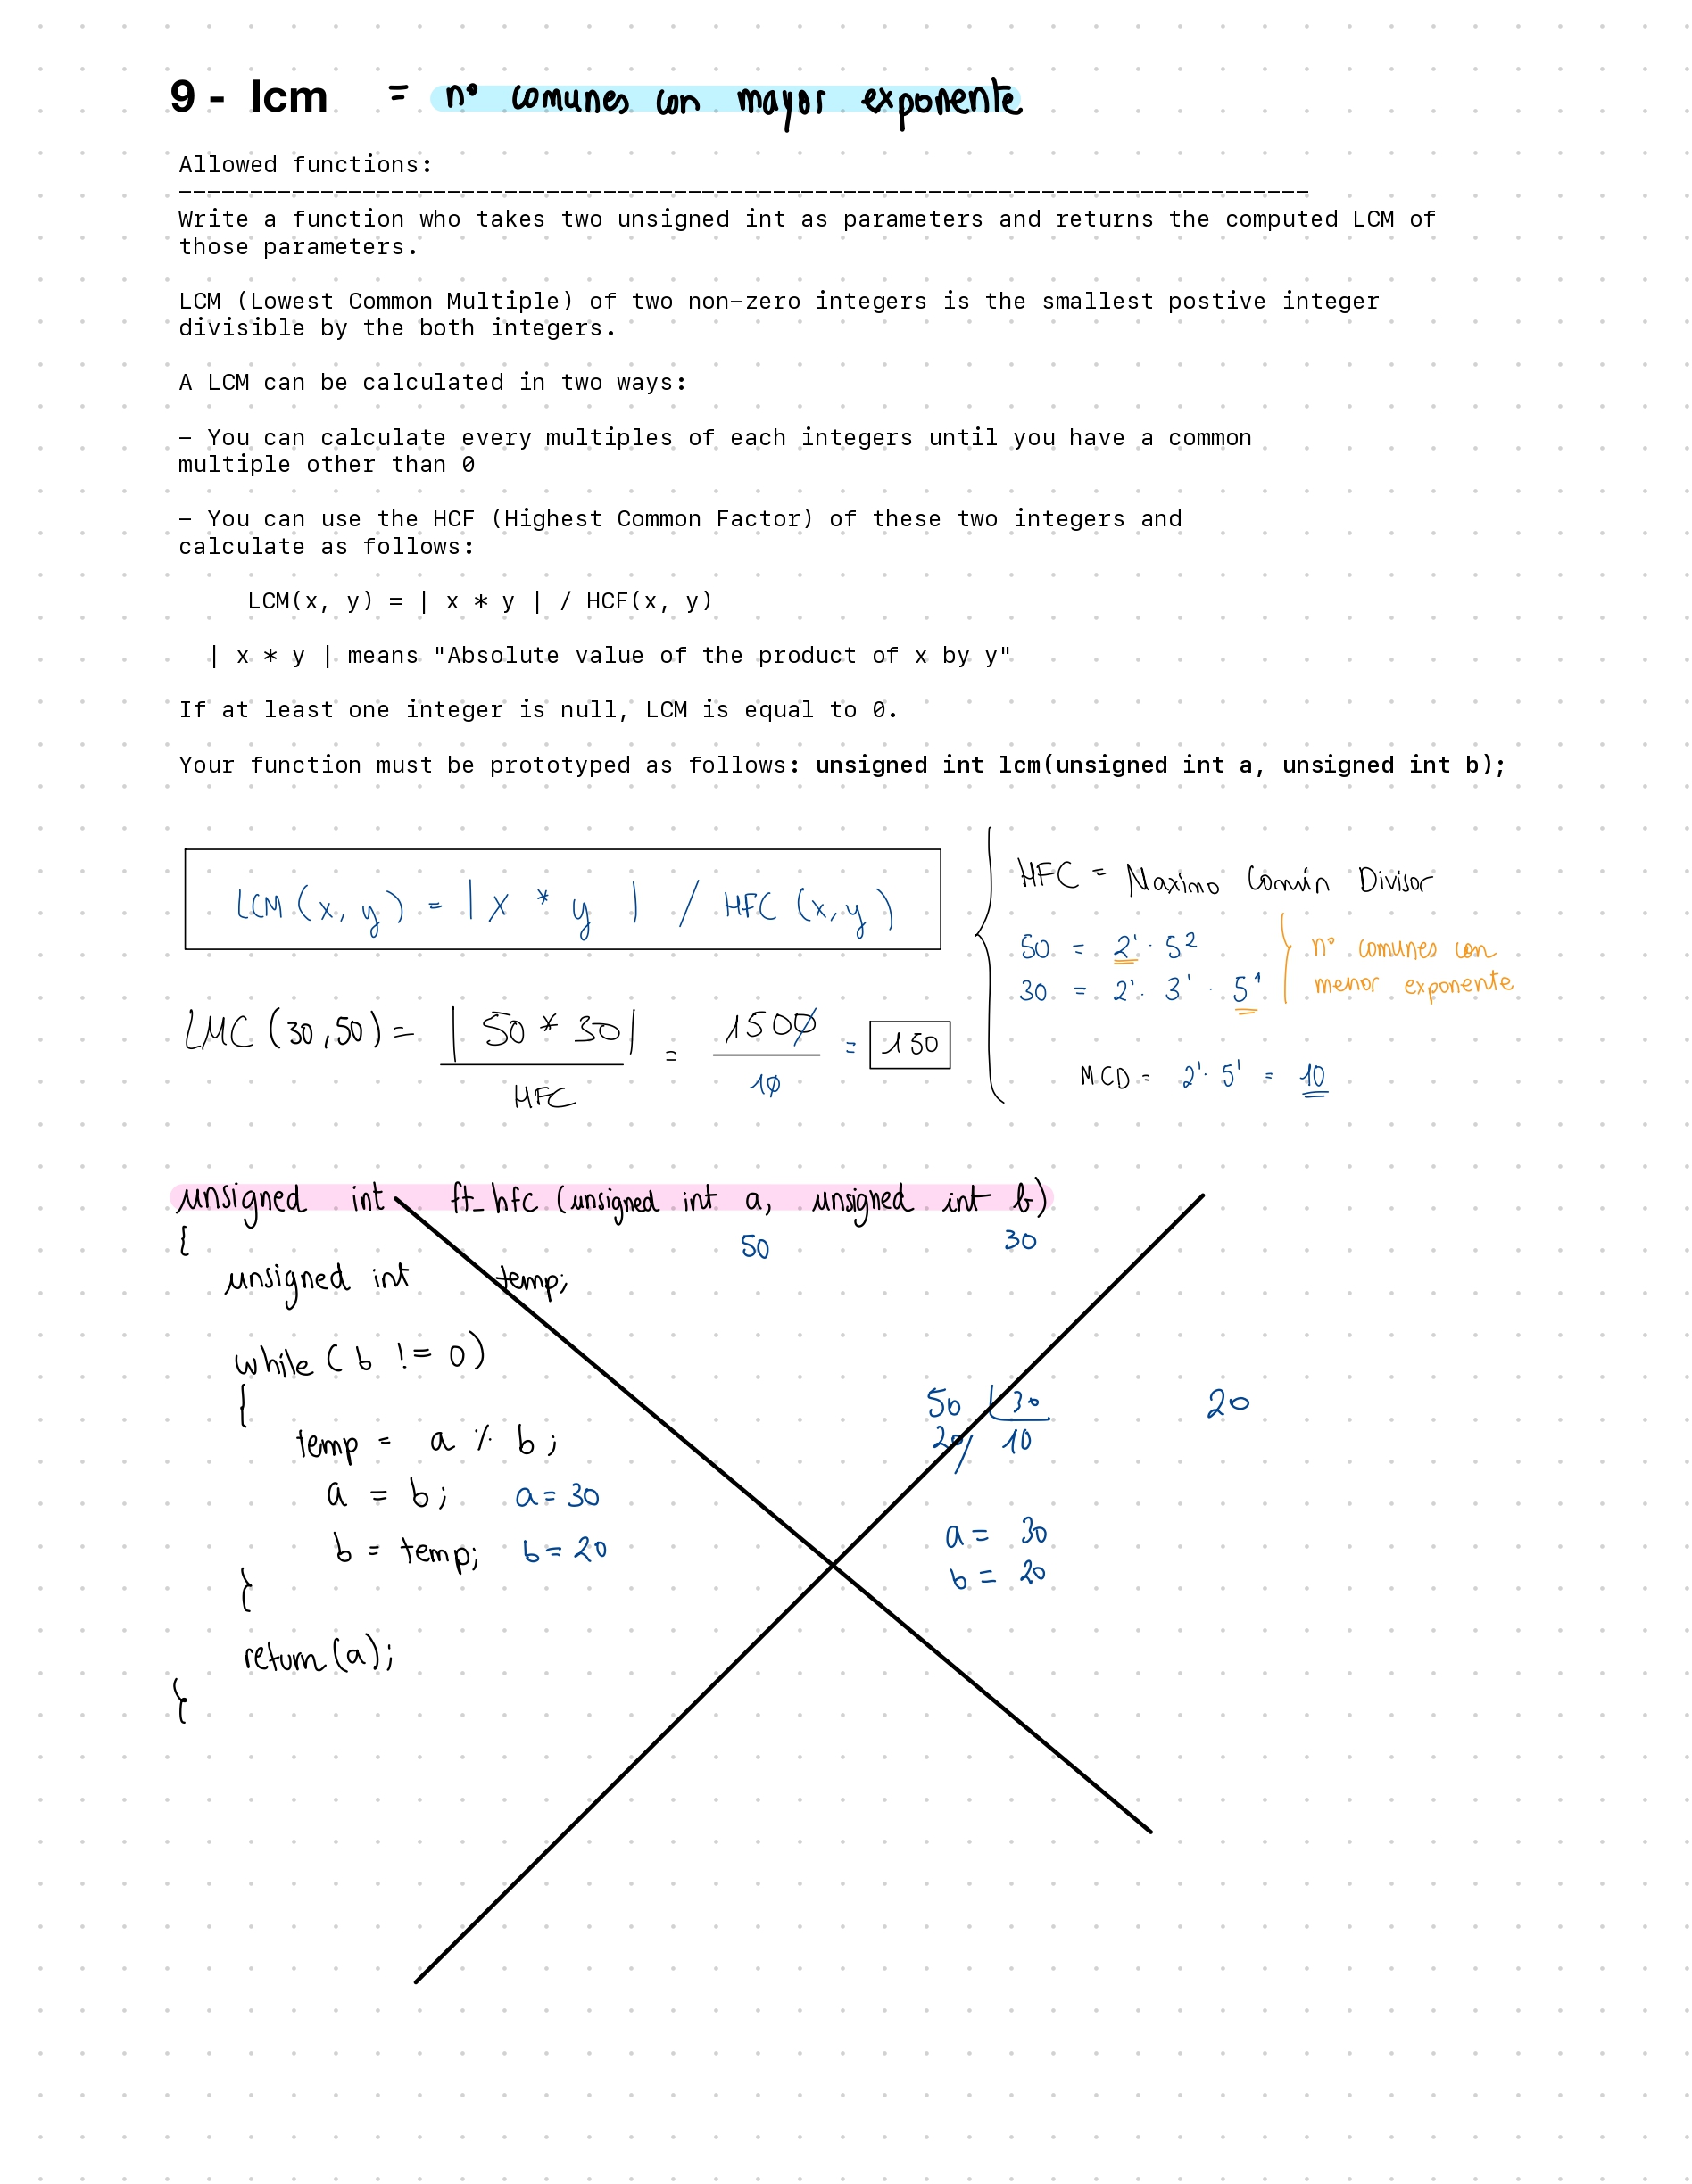 9 - lcm = nº comunes con mayor exponente
Allowed functions:
--------------------------------------------------------------------------------
Write a function who takes two unsigned int as parameters and returns the computed LCM of
those parameters.
LCM (Lowest Common Multiple) of two non-zero integers is the smallest postive integer
divisible by the both integers.
A LCM can be calculated in two ways:
- You can calculate every multiples of each integers until you have a common
multiple other than 0
- You can use the HCF (Highest Common Factor) of these two integers and
calculate as follows:
LCM(x, y) = | x * y | / HCF(x, y)
| x * y | means "Absolute value of the product of x by y"
If at least one integer is null, LCM is equal to 0.
Your function must be prototyped as follows: unsigned int lcm(unsigned int a, unsigned int b);
LCM (x, y) = | x * y | / HFC (x,y)
LMC (30,50) = | 50 * 30 | = 1500 = 150
HFC 10
HFC = Maximo Común Divisor
50 = 2¹ · 5²
30 = 2¹ · 3¹ · 5¹
nº comunes con
menor exponente
MCD = 2¹ · 5¹ = 10
unsigned int ft_hfc (unsigned int a, unsigned int b)
{ 50 30
unsigned int temp;
while ( b != 0 )
{
temp = a % b ;
a = b ; a = 30
b = temp; b = 20
}
return (a);
}
50 30 20
20 10
a = 30
b = 20